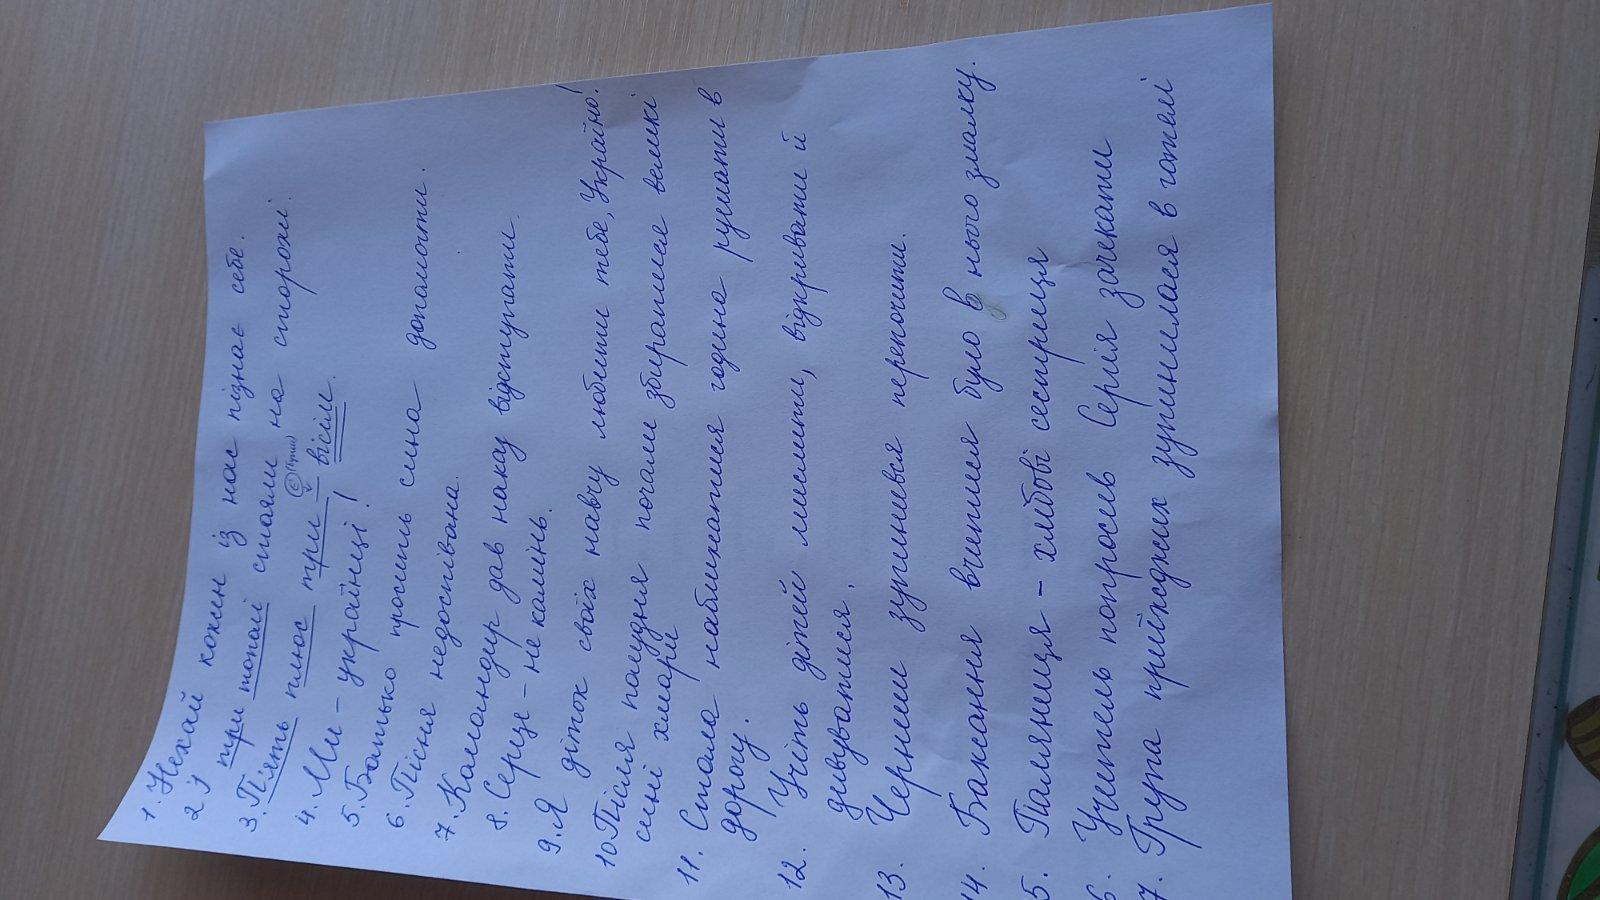 1. Нехай кожен із нас пізнає себе.
2 І три тополі стояли на сторожі.
є (буде)
3. П'ять плюс три – вісім.
4. Ми – українці!
5. Батько просить сина допомогти.
6. Пісня недоспівана.
7. Командир дав наказ відступати.
8. Серце – не камінь.
9. Я діток своїх навчу любити тебе, Україно!
10 Після полудня почали збиратися великі
сині хмари
11. Стала наближатися година рушати в
дорогу.
12. Учіть дітей мислити, відкривати й
дивуватися.
13. Черниш зупинився перепочити.
14. Бажання вчитися було в нього змалку.
5. Паляниця – хлібові сестриця
6. Учитель попросив Сергія зачекати
7. Група приїжджих зупинилася в готелі